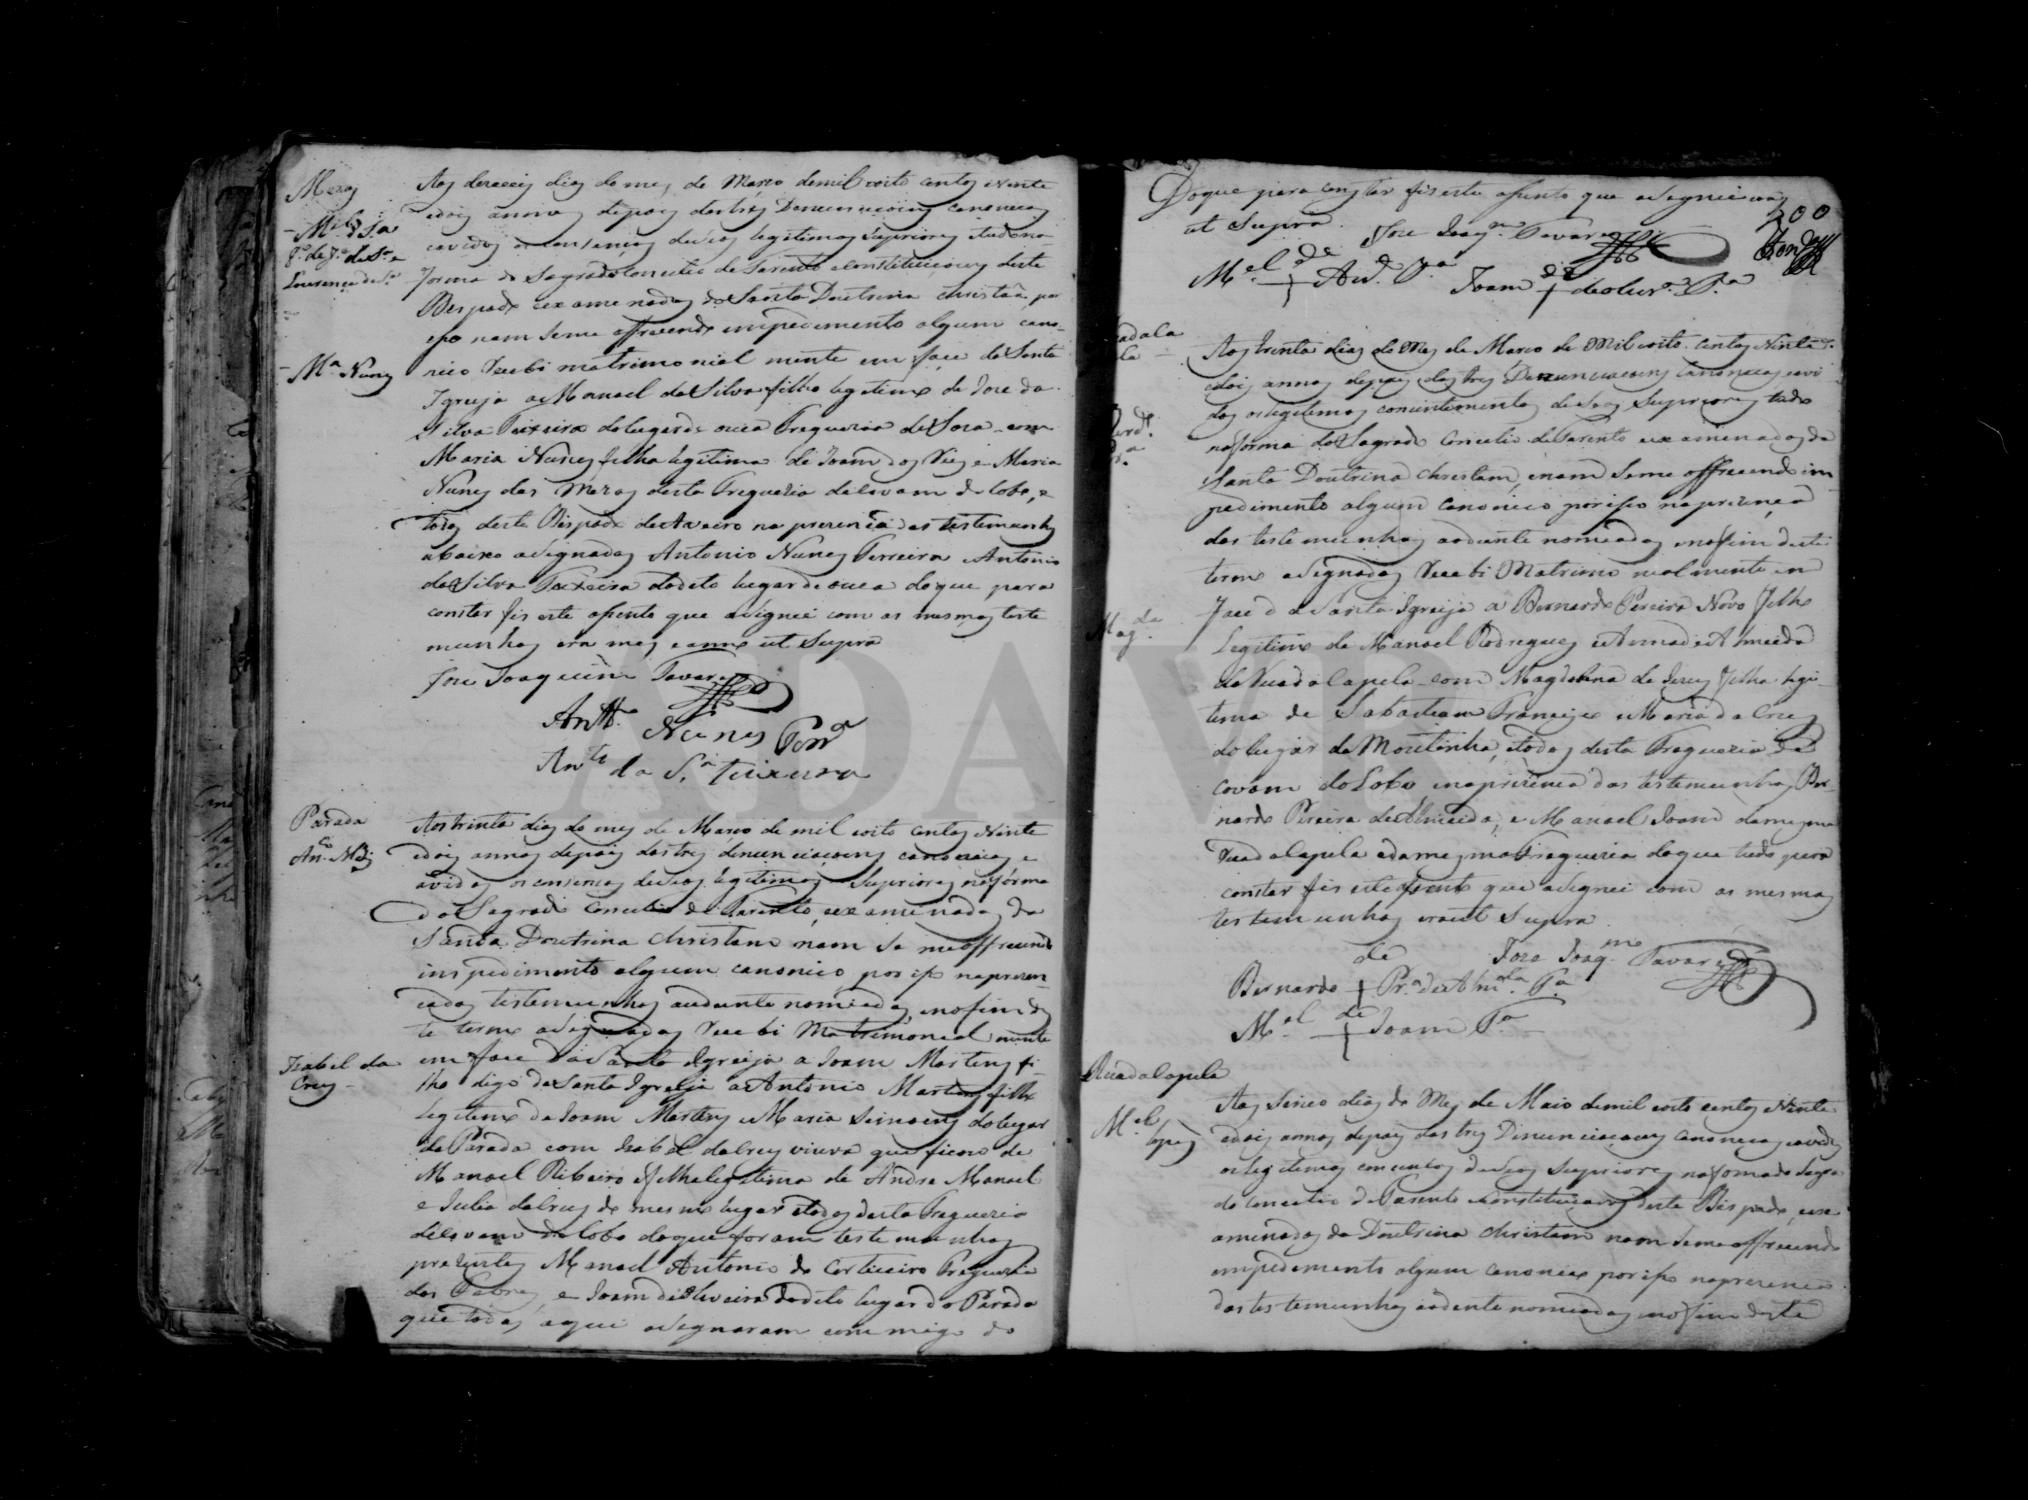 Mezas
Aos dezaceis dias do mes de Marso de mil oito centos e vinte
e dois annos depois das tres Denunciacoens canonicas
Mel da Sa
e avidos os consensos de seos legitimos Superiores e tudo na
forma do Sagrado Concilio de Tarento e Constituicoens deste
Bispado e examenados da Santa Doutrina Christaã por
iso nam seme offrecendo impedimento algum cano-
Ma Nunes
nico Recebi matrimonial mente em face da Santa
Igreija a Manoel da Silva filho legitimo de Joze da
Silva Teixeira do lugar de ouca Freguezia de Soza com
Maria Nunes filha legitima de Joam dos Reis e Maria
Nunes das Mezas desta Freguezia de Covam do lobo, e
todos deste Bispado de Aveiro na prezença das testemunhas
abaixo asignadas Antonio Nunes Ferreira e Antonio
da Silva Teixeira do dito lugar de ouca do que para
constar fis este asento que asignei com as mesmas teste
munhas era mes e anno ut Supra
Joze Joaquim Tavares
Antº Nunes Ferrª
Antº da Sª Teixeira
Parada
Anto Miz
Aos trinta dias do mes de Marso de mil oito centos e vinte
e dois annos depois das tres denunciaçoens canonicas e
avidos os consensos de seos legitimos Superiores na forma
do Sagrado Concilio de Tarento, e examenados da
Santa Doutrina Christam nam se me offrecendo
impedimento algum canonico por iso na prezen-
ca das testemunhas audiante nomiadas, e no fim des
te termo asignadas Recebi Matrimonial mente
Izabel da
Crus
em face da Santa Igreija a Joam Martins fi-
lho digo da Santa Igreija a Antonio Martins filho
legitimo de Joam Martins e Maria Simoens do lugar
da Parada com Izabel da Crus viuva que ficou de
Manoel Ribeiro e filha legitima de Andre Manoel
e Julia da Crus do mesmo lugar e todos desta Freguezia
de Covam do lobo do que foram testemunhas
prezentes Manoel Antonio do Corticeiro Freguezia
das Febres, e Joam de Oliveira do dito lugar da Parada
que todos aqui asignaram com migo do
Do que para constar fis este asento que asignei era
ut Supra
200
Joze Joaqm Tavares
Mel de + Ant. Ta
Joam de + de olivra Ta
Aos trinta dias do Mes de Marco de Mil oito centos e Vinte
e dois annos depois das tres Denunciacoens Canonicas e avi-
dos os legitimos concintimentos de Seos Superiores tudo
na forma do Sagrado Concilio de Tarento e examinados da
Santa Doutrina Christam, e nam Se me offrecendo im-
pedimento algum canonico por iso na prezença
das testemunhas audiante nomiadas e no fim deste
termo asignadas Recebi Matrimonialmente em
Magda
face da Santa Igreija a Bernardo Pereira Novo filho
Legitimo de Manoel Rodrigues e Anna de Almeida
da Quadalapela com Magdalena de Jezus filha legi-
tima de Sabastiam Francisco e Maria da Crus
do lugar da Moutinha, e todos desta Freguezia de
Covam do Lobo na prezença das testemunhas Ber-
nardo Pereira de Almeida, e Manoel Joam da mesma
Quadalapela e da mesma Freguezia do que tudo para
constar fis este asento que asignei com as mesmas
testemunhas era ut Supra
Joze Joaqm Tavares
Bernardo de + Pra de Almda Ta
Mel de + Joam Ta
Quadalapela
Mel
lopes
Aos Sinco dias do Mes de Maio de mil oito centos e Vinte
e dois annos depois das tres Dinunciacoens Canonicas e avidos
os legitimos consentos de Seos Superiores na forma do Sagra-
do Concilio de Tarento e Constituicoens deste Bispado, e exa
aminados da Doutrina Christam nam Se me offrecendo
impedimento algum canonico por iso na prezenca
das testemunhas audiante nomiadas e no fim deste
ADAVR